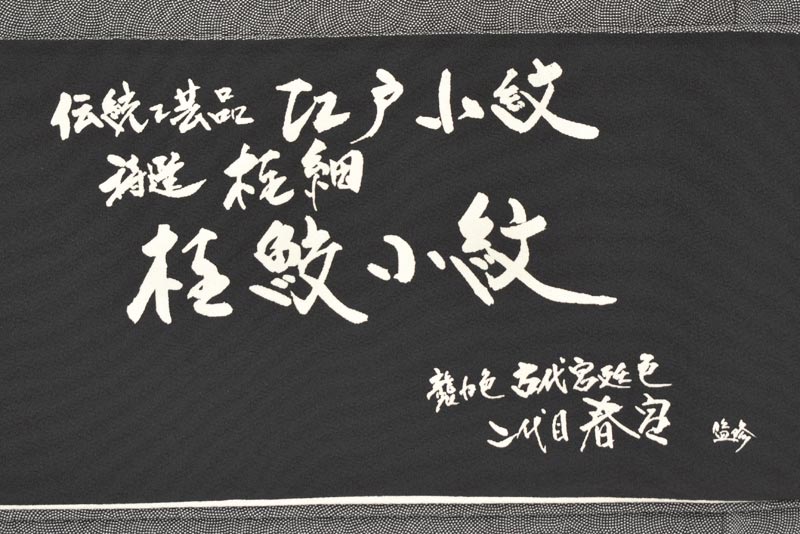 伝統工芸品 江戸小紋
特選 極細
極鮫小紋
襲名色 古代宮廷色
二代目 春宝 監修